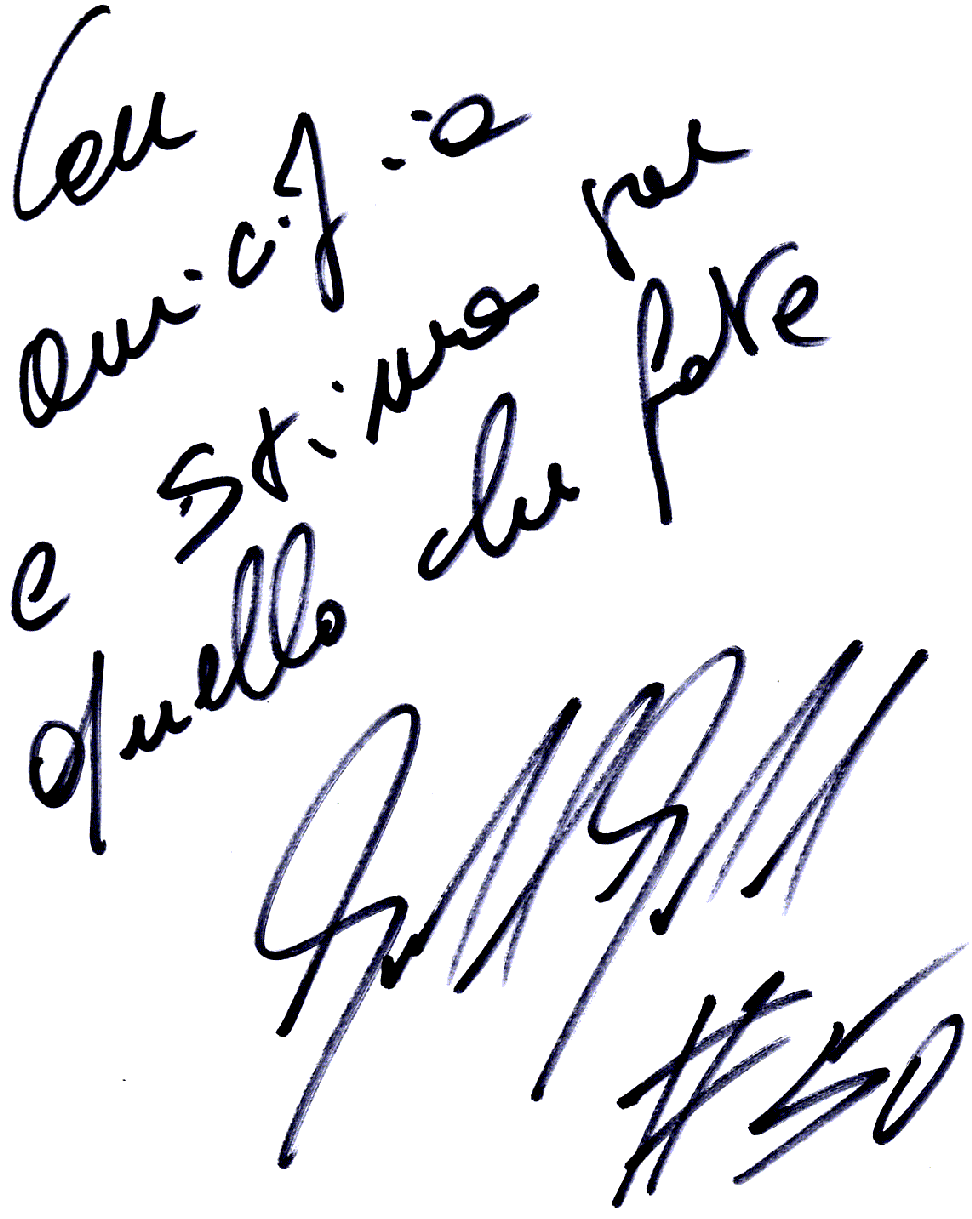 Con
amicizia
e stima per
quello che fate
#50